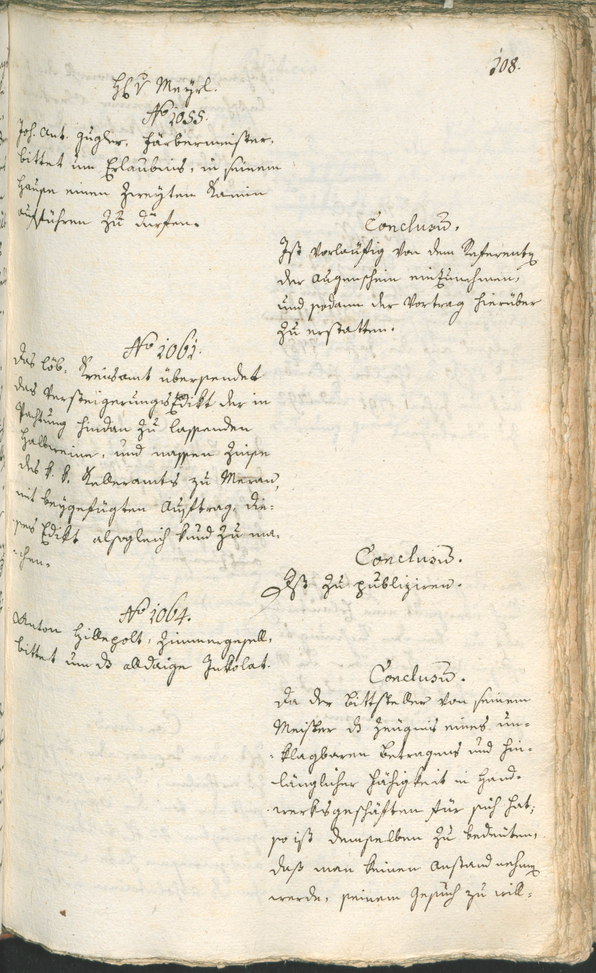 108.
Hr. v. Meyrl.
No 1055.
Joh. Ant. Gugler, Färbermeister,
bittet um Erlaubnis, in seinem
Hause einen zweyten Kamin
aufführen zu dürfen.
Conclusū.
Ist vorläufig von dem Referenten
der Augenschein einzunehmen,
und sodann der Vortrag hierüber
zu erstatten.
No 1061.
Das löb. Kreisamt übersendet
das Versteigerungs Edikt der in
Pachtung hindan zu lassenden
und nassen Zinse
des k. k. Kelleramts zu Meran,
mit beygefügten Auftrag, die-
ses Edikt alsogleich kund zu ma-
chen.
Conclusū.
Ist zu publiziren.
No 1064.
Anton Hillepolt, Zimmergesell,
bittet um ds alldaige Inkolat.
Conclusū.
Da der Bittsteller von seinem
Meister ds Zeugnis eines un-
klagbaren Betragens und hin-
länglicher Fähigkeit in Hand-
werksgeschäften für sich hat;
so ist demselben zu bedeuten,
daß man keinen Anstand nehmen
werde, seinem Gesuch zu will-